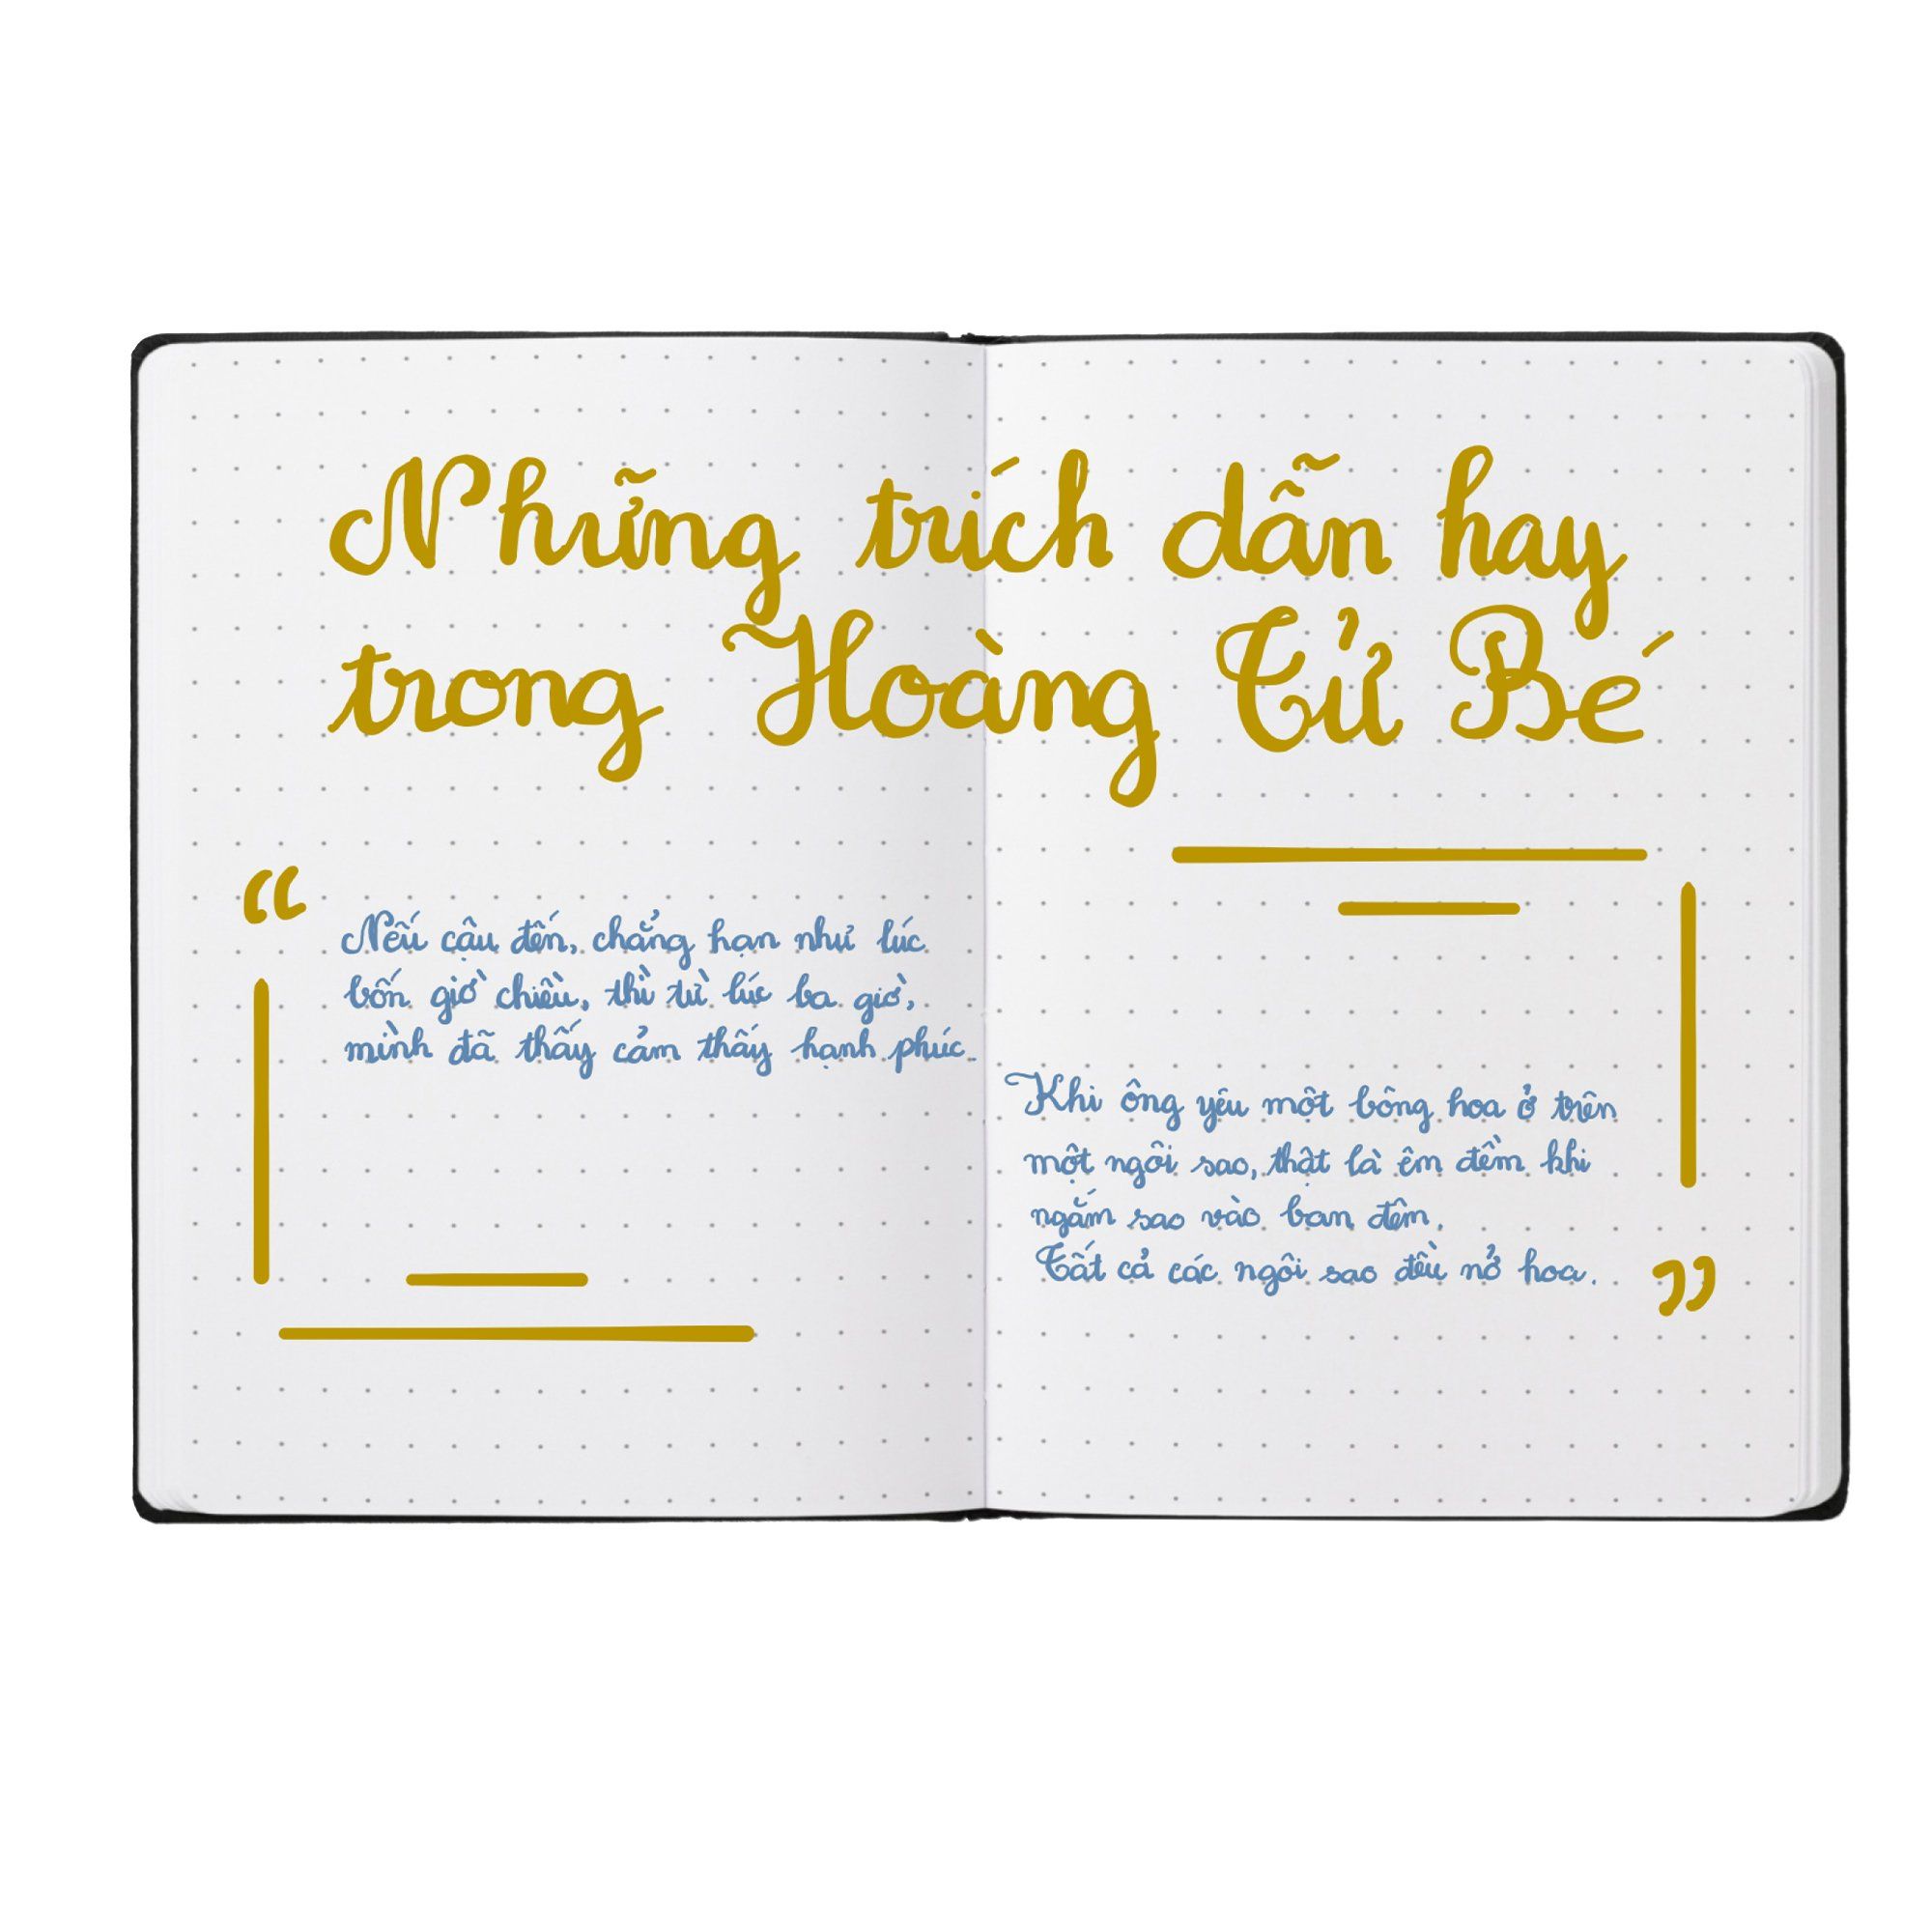 Những trích dẫn hay
trong Hoàng Tử Bé
“
Nếu cậu đến, chẳng hạn như lúc
bốn giờ chiều, thì từ lúc ba giờ,
mình đã thấy cảm thấy hạnh phúc.
Khi ông yêu một bông hoa ở trên
một ngôi sao, thật là êm đềm khi
ngắm sao vào ban đêm.
Tất cả các ngôi sao đều nở hoa.
”